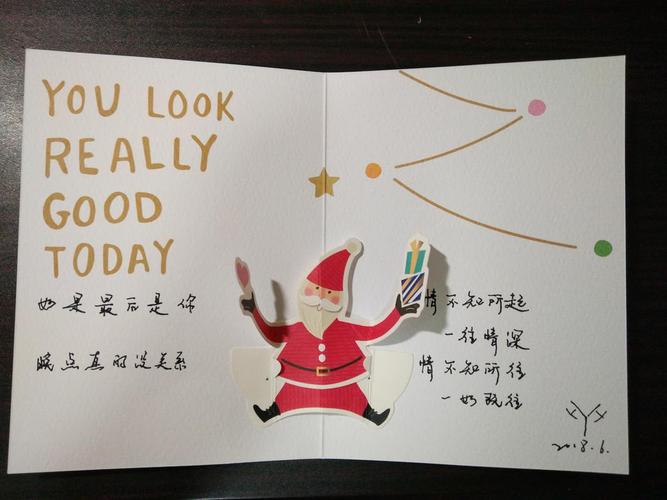 YOU LOOK
REALLY
GOOD
TODAY
如果最后是你
晚点真的没关系
情不知所起
一往情深
情不知所往
一如既往
2018.6.